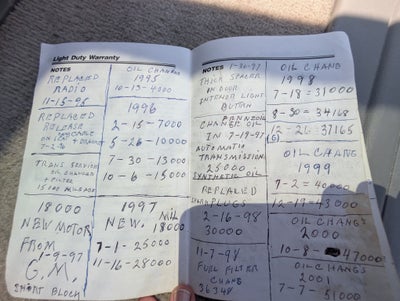 Light Duty Warranty
NOTES
REPLACED
RADIO
11-15-95
REPLACED
RELEASE
7-2-96
TRANS. SERVICE
OIL CHANGED
FILTER
15000 MILEAGE
18000
NEW MOTOR
FROM
1-9-97
G.M.
SHORT BLOCK
OIL CHANGE
1995
10-13-4000
1996
2-15-7000
5-26-10000
7-30-13000
10-6-15000
1997
NEW. Mil
18000
7-1-25000
11-16-28000
NOTES 1-30-97
THICK SPACER
IN DOOR
INTERIOR LIGHT
BUTTON
CHANGE OIL
IN 7-19-97
AUTOMATIC
TRANSMISSION
25000
SYNTHETIC OIL
REPLACED
SPARK PLUGS
2-16-98
30000
11-7-98
FUEL FILTER
CHANG
36348
OIL CHANG
1998
7-18=31000
8-30=34168
12-26=37165
OIL CHANG
1999
7-2=40000
12-19=43000
OIL CHANGS
2000
10-8-47000
OIL-CHANGS
2001
7-7-51000